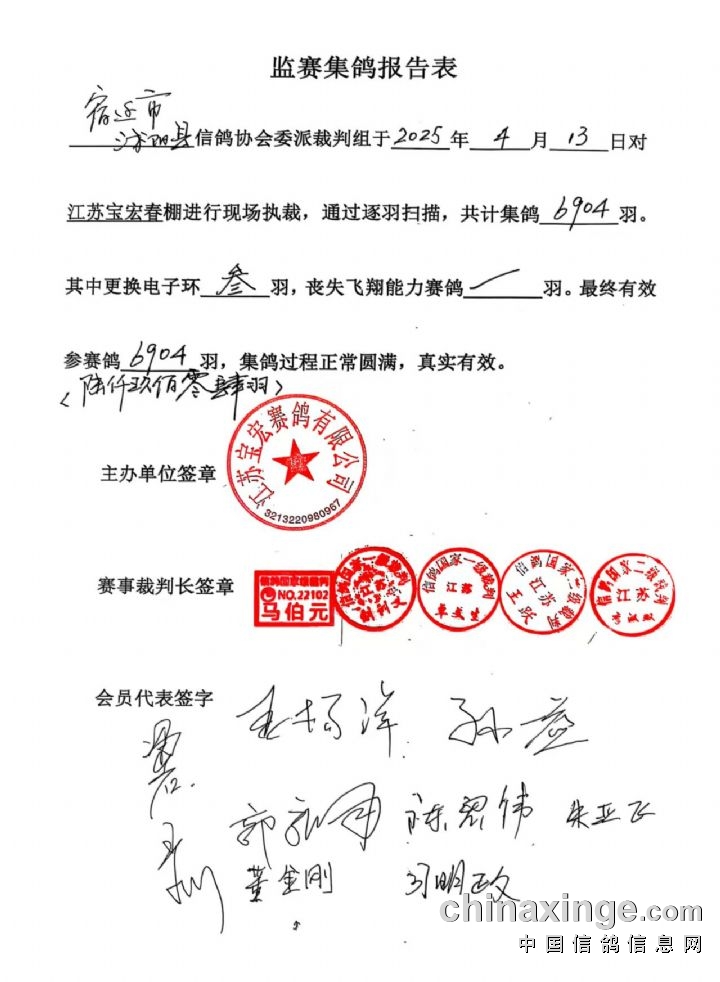 监赛集鸽报告表
宿迁市
沭阳县信鸽协会委派裁判组于2025年4月13日对
江苏宝宏春棚进行现场执裁，通过逐羽扫描，共计集鸽6904羽。
其中更换电子环叁羽，丧失飞翔能力赛鸽/羽。最终有效
参赛鸽6904羽，集鸽过程正常圆满，真实有效。
(陆仟玖佰零肆羽)
主办单位签章
江苏宝宏赛鸽有限公司
3213220980967
赛事裁判长签章
信鸽国家级裁判
NO.22102
马伯元
信鸽国家一级裁判
江苏
信鸽国家一级裁判
江苏
信鸽国家二级裁判
江苏
王跃
信鸽国家二级裁判
江苏
会员代表签字
孙
陈 伟
朱亚飞
董金刚
明政
chinaxinge.com
中国信鸽信息网